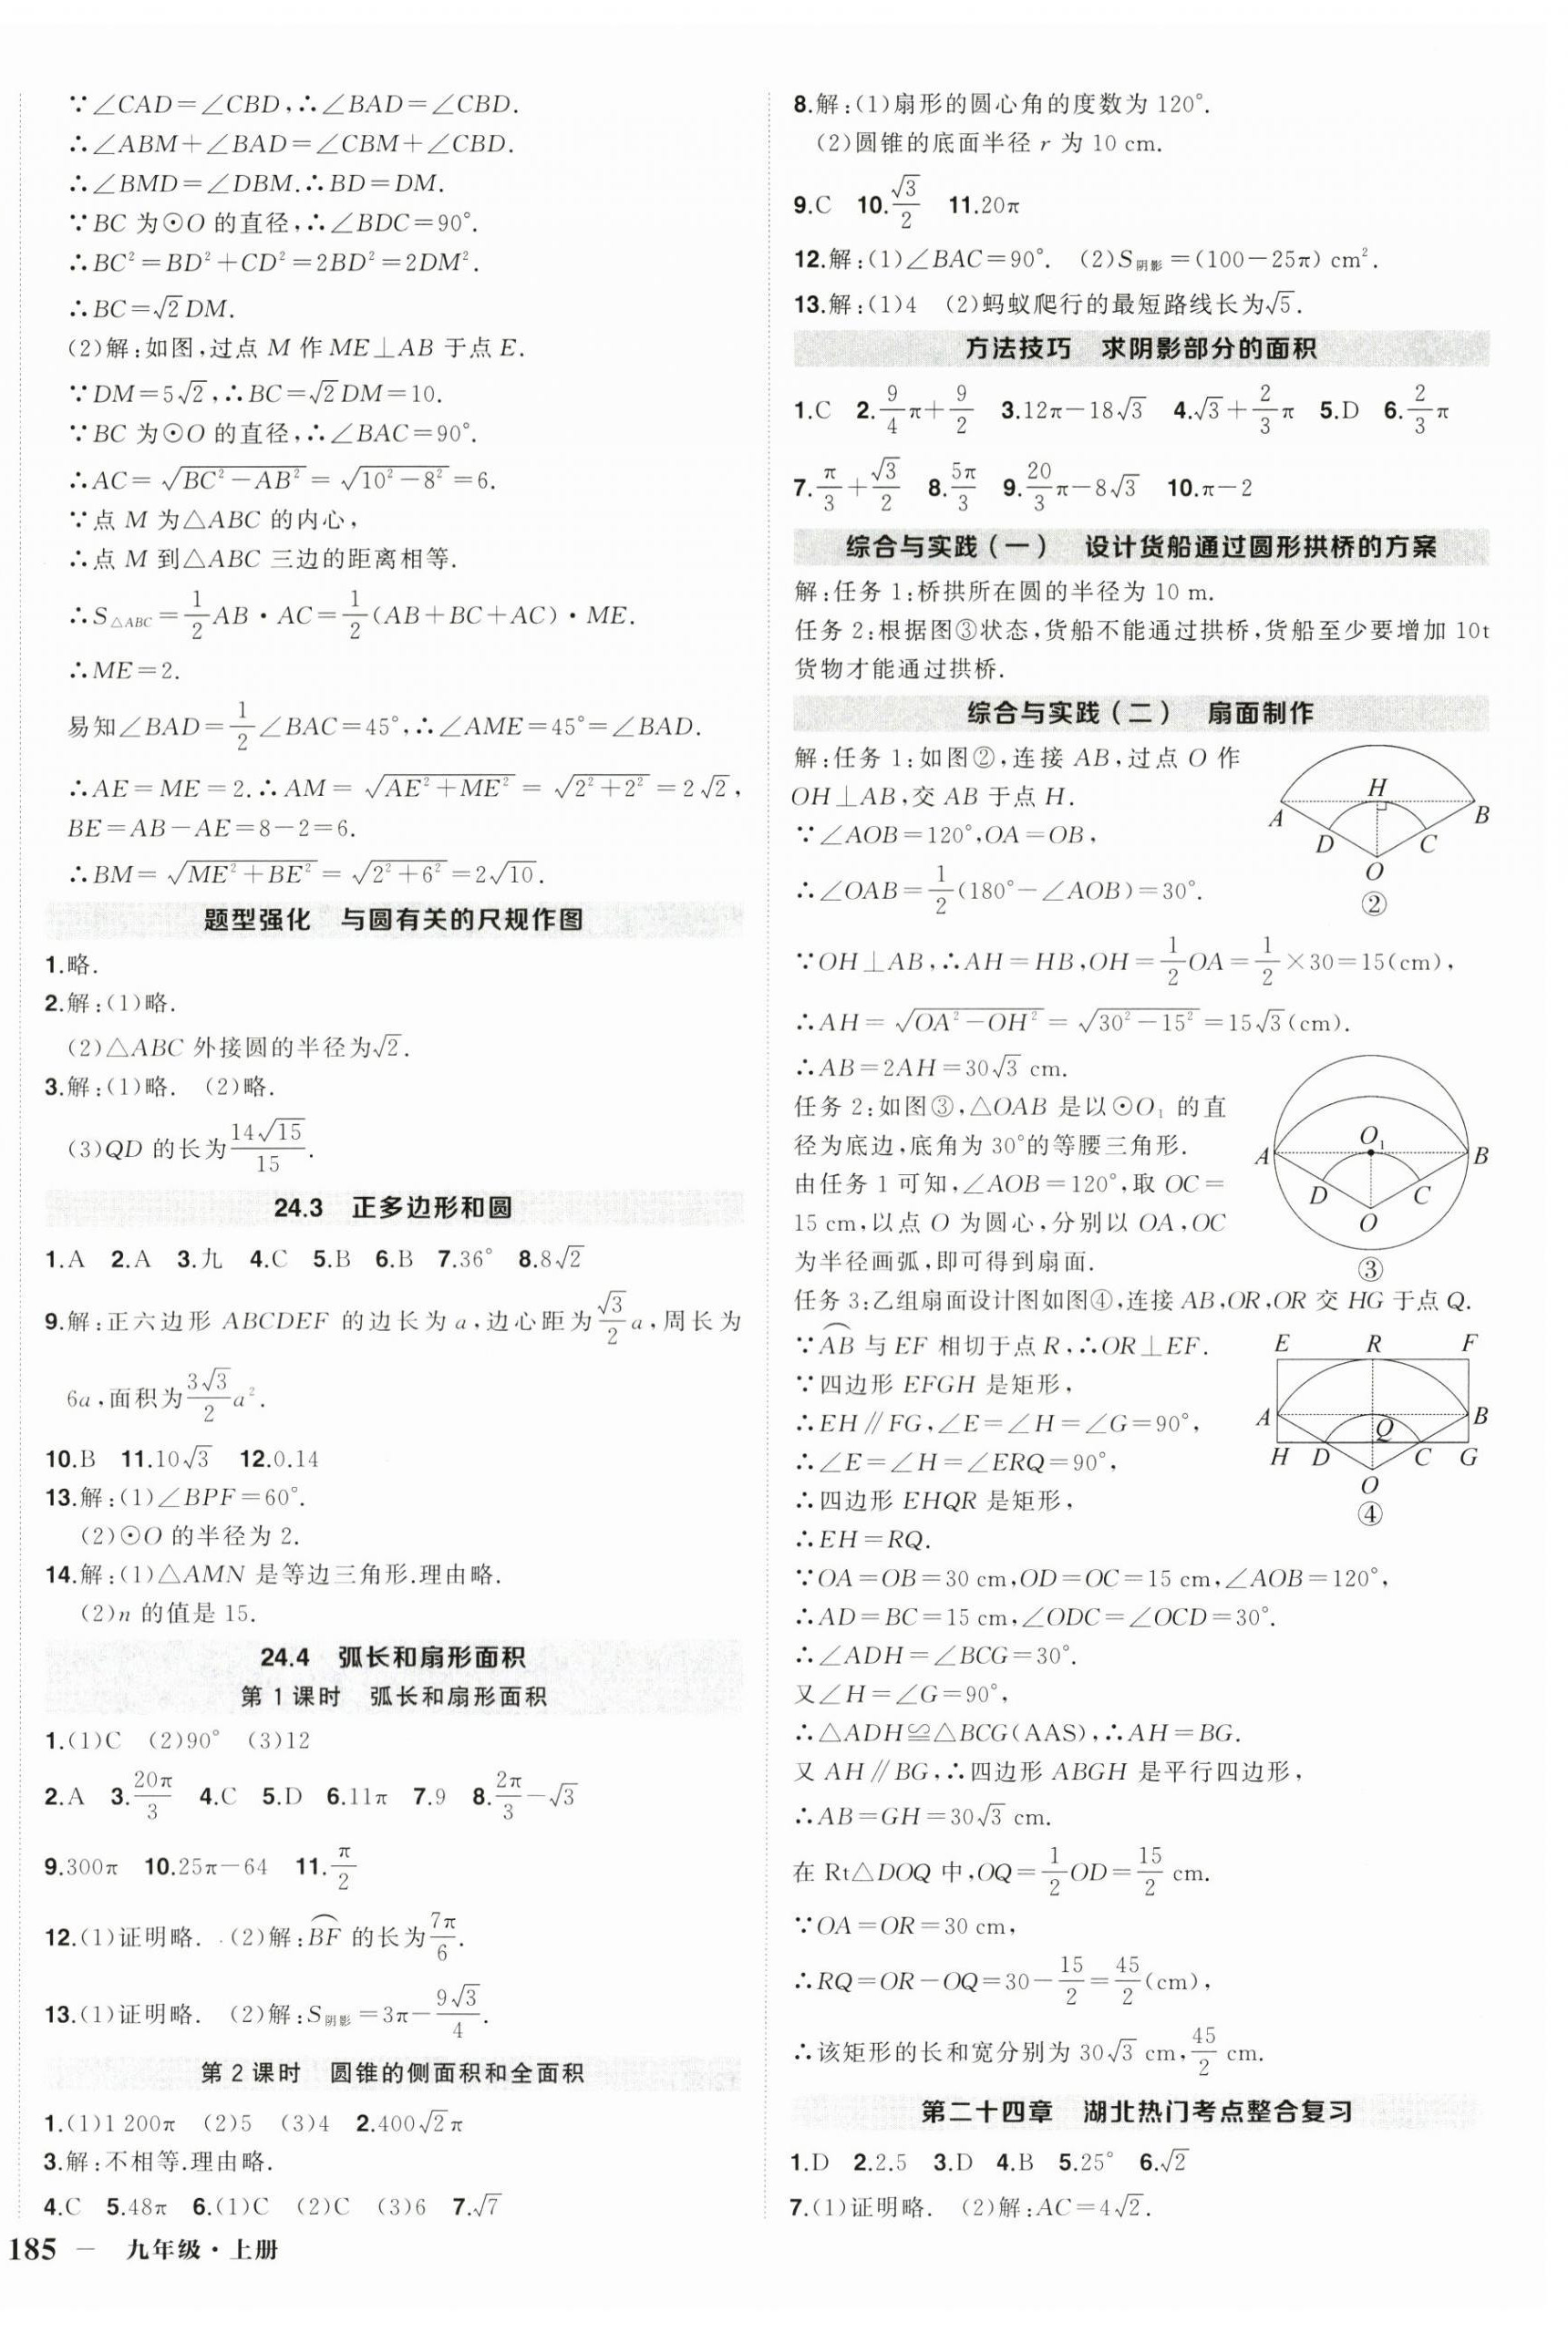 ∵∠CAD=∠CBD,∴∠BAD=∠CBD.
∴∠ABM+∠BAD=∠CBM+∠CBD.
∴∠BMD=∠DBM.∴BD=DM.
∵BC 为⊙O 的直径,∴∠BDC=90°.
∴BC²=BD²+CD²=2BD²=2DM².
∴BC=√2DM.
(2)解:如图,过点 M 作 ME⊥AB 于点 E.
∵DM=5√2,∴BC=√2DM=10.
∵BC 为⊙O 的直径,∴∠BAC=90°.
∴AC=√(BC²-AB²)=√(10²-8²)=6.
∵点 M 为△ABC 的内心,
∴点 M 到△ABC 三边的距离相等.
∴S△ABC=1/2AB·AC=1/2(AB+BC+AC)·ME.
∴ME=2.
易知∠BAD=1/2∠BAC=45°,∴∠AME=45°=∠BAD.
∴AE=ME=2.∴AM=√(AE²+ME²)=√(2²+2²)=2√2,
BE=AB-AE=8-2=6.
∴BM=√(ME²+BE²)=√(2²+6²)=2√10.
题型强化 与圆有关的尺规作图
1.略.
2.解:(1)略.
(2)△ABC 外接圆的半径为√2.
3.解:(1)略. (2)略.
(3)QD 的长为14√15/15.
24.3 正多边形和圆
1.A 2.A 3.九 4.C 5.B 6.B 7.36° 8.8√2
9.解:正六边形 ABCDEF 的边长为 a,边心距为√3/2a,周长为
6a,面积为3√3/2a².
10.B 11.10√3 12.0.14
13.解:(1)∠BPF=60°.
(2)⊙O 的半径为 2.
14.解:(1)△AMN 是等边三角形.理由略.
(2)n 的值是 15.
24.4 弧长和扇形面积
第 1 课时 弧长和扇形面积
1.(1)C (2)90° (3)12
2.A 3.20π/3 4.C 5.D 6.11π 7.9 8.2π/3-√3
9.300π 10.25π-64 11.π/2
12.(1)证明略. (2)解:⌒BF 的长为7π/6.
13.(1)证明略. (2)解:S阴影=3π-9√3/4.
第 2 课时 圆锥的侧面积和全面积
1.(1)1 200π (2)5 (3)4 2.400√2π
3.解:不相等.理由略.
4.C 5.48π 6.(1)C (2)C (3)6 7.√7
185 — 九年级·上册
8.解:(1)扇形的圆心角的度数为 120°.
(2)圆锥的底面半径 r 为 10 cm.
9.C 10.√3/2 11.20π
12.解:(1)∠BAC=90°. (2)S阴影=(100-25π) cm².
13.解:(1)4 (2)蚂蚁爬行的最短路线长为√5.
方法技巧 求阴影部分的面积
1.C 2.9/4π+9/2 3.12π-18√3 4.√3+2/3π 5.D 6.2/3π
7.π/3+√3/2 8.5π/3 9.20/3π-8√3 10.π-2
综合与实践(一) 设计货船通过圆形拱桥的方案
解:任务 1:桥拱所在圆的半径为 10 m.
任务 2:根据图③状态,货船不能通过拱桥,货船至少要增加 10t
货物才能通过拱桥.
综合与实践(二) 扇面制作
解:任务 1:如图②,连接 AB,过点 O 作
OH⊥AB,交 AB 于点 H.
∵∠AOB=120°,OA=OB,
∴∠OAB=1/2(180°-∠AOB)=30°.
H
A B
D C
O
②
∵OH⊥AB,∴AH=HB,OH=1/2OA=1/2×30=15(cm),
∴AH=√(OA²-OH²)=√(30²-15²)=15√3(cm).
∴AB=2AH=30√3 cm.
任务 2:如图③,△OAB 是以⊙O₁ 的直
径为底边,底角为 30°的等腰三角形.
由任务 1 可知,∠AOB=120°,取 OC=
15 cm,以点 O 为圆心,分别以 OA,OC
为半径画弧,即可得到扇面.
O₁
A B
D C
O
③
任务 3:乙组扇面设计图如图④,连接 AB,OR,OR 交 HG 于点 Q.
∵⌒AB 与 EF 相切于点 R,∴OR⊥EF.
∵四边形 EFGH 是矩形,
∴EH∥FG,∠E=∠H=∠G=90°,
∴∠E=∠H=∠ERQ=90°,
∴四边形 EHQR 是矩形,
∴EH=RQ.
E R F
A Q B
H D C G
O
④
∵OA=OB=30 cm,OD=OC=15 cm,∠AOB=120°,
∴AD=BC=15 cm,∠ODC=∠OCD=30°.
∴∠ADH=∠BCG=30°.
又∠H=∠G=90°,
∴△ADH≌△BCG(AAS),∴AH=BG.
又 AH∥BG,∴四边形 ABGH 是平行四边形,
∴AB=GH=30√3 cm.
在 Rt△DOQ 中,OQ=1/2OD=15/2 cm.
∵OA=OR=30 cm,
∴RQ=OR-OQ=30-15/2=45/2(cm),
∴该矩形的长和宽分别为 30√3 cm,45/2 cm.
第二十四章 湖北热门考点整合复习
1.D 2.2.5 3.D 4.B 5.25° 6.√2
7.(1)证明略. (2)解:AC=4√2.